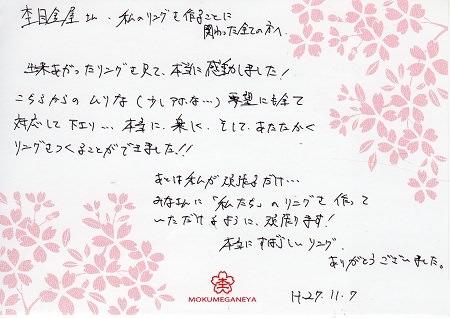 杢目金屋さん、私のリングを作ることに
関わった全ての方へ
出来あがったリングを見て、本当に感動しました!
こちらからのムリな(少しアホな…)要望にも全て
対応して下さり…本当に、楽しく、そして、あたたかく
リングをつくることができました!!
あとは私が頑張るだけ…
みなさんに「私たち」のリングを作って
いただけるように、頑張ります!
本当にすばらしいリング、
ありがとうございました。
MOKUMEGANEYA
H.27.11.7